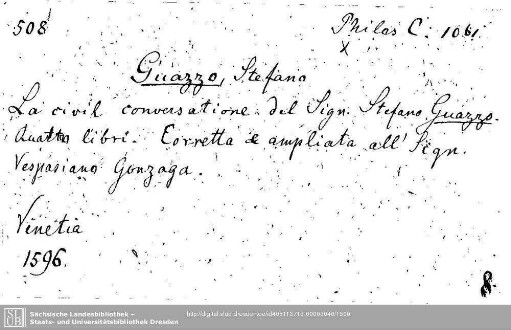 508
Philos C. 1061.
X
Guazzo, Stefano
La civil conversatione del Sign. Stefano Guazzo.
Quatto libri. Corretta e ampliata all' Sign.
Vespasiano Gonzaga.
Vinetia
1596.
8.
Sächsische Landesbibliothek –
Staats- und Universitätsbibliothek Dresden